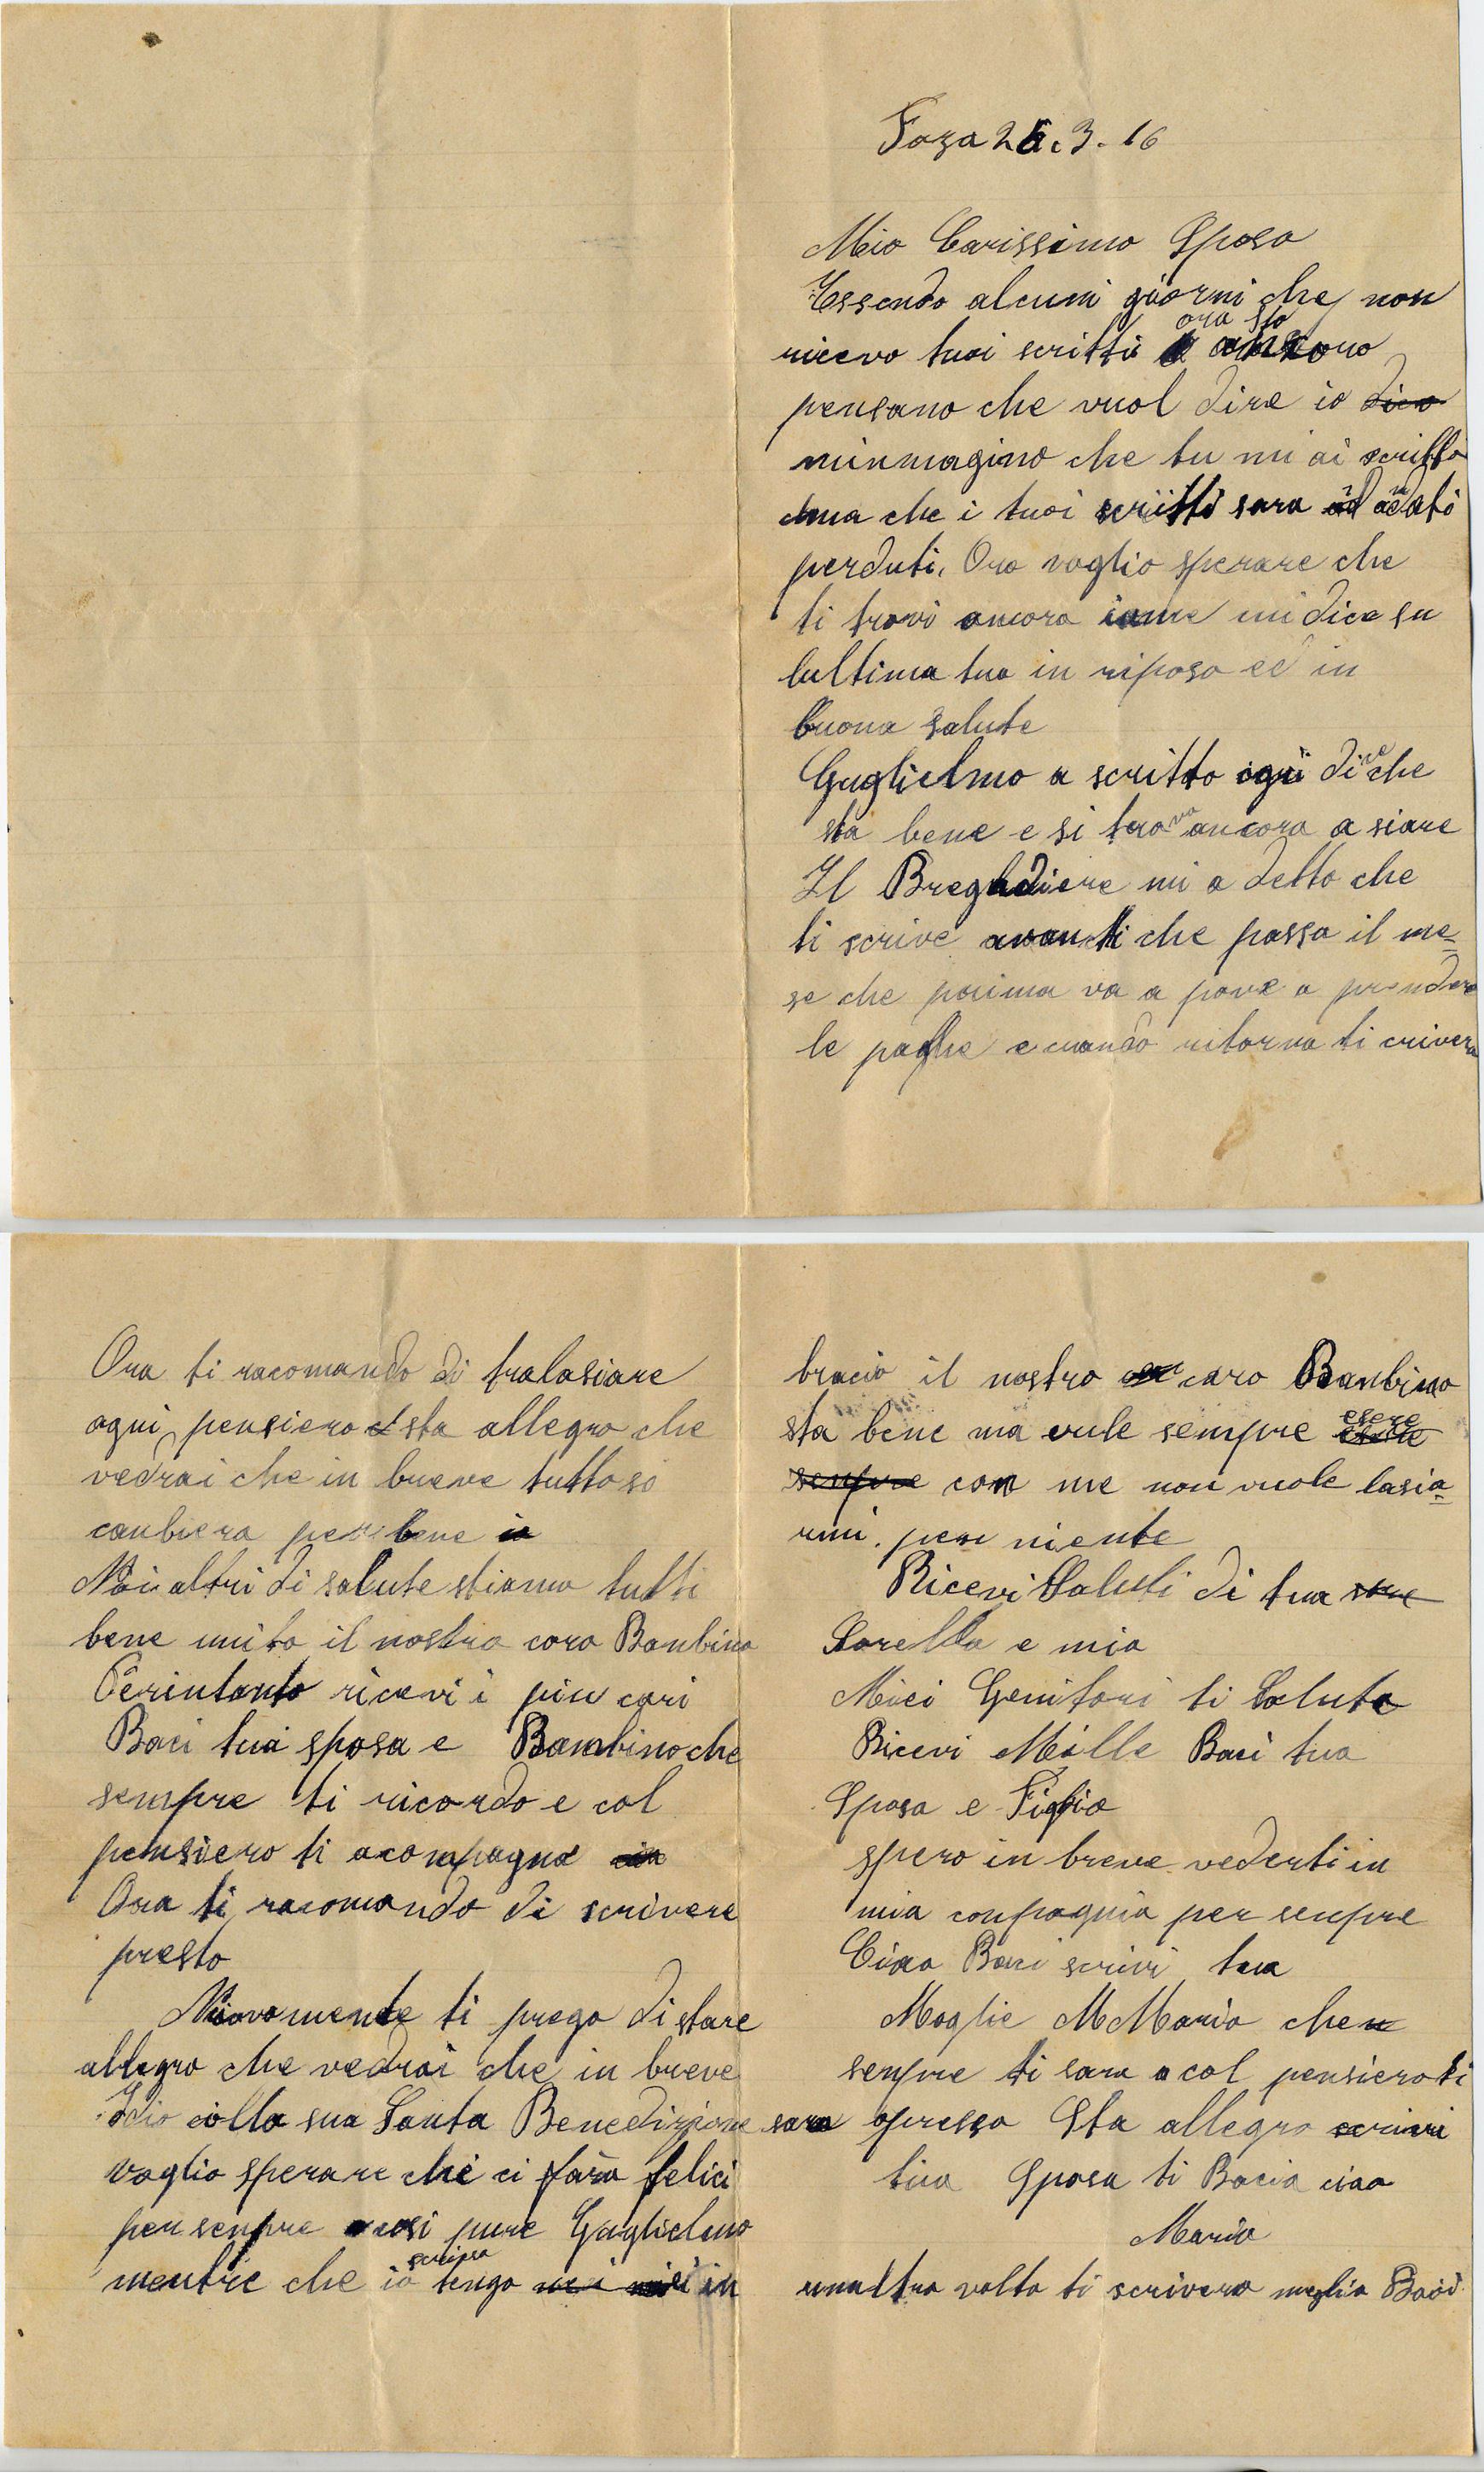 Foza 25.3.16
Mio Carissimo Sposo
Essendo alcuni giorni che non
ricevo tuoi scritti ora sto
pensano che vuol dire io dico
minmagino che tu mi ai scritto
ma che i tuoi scritti sara andati
perduti. Ora voglio sperare che
ti trovi ancora come mi dice su
lultima tua in riposo ed in
buona salute
Guglielmo a scritto ogi dice che
sta bene e si trova ancora a siare
Il Bregadiere mi a detto che
ti scrive avanti che passa il me=
se che prima va a pove a prendere
le paghe e cuando ritorna ti crivera
Ora ti racomando di tralasiare
ogni pensiero sta allegro che
vedrai che in breve tutto si
canbiera per bene
Noi altri di salute stiamo tutti
bene unito il nostro caro Banbino
Perintanto ricevi i piu cari
Baci tua sposa e Bambino che
sempre ti ricordo e col
pensiero ti acompagna
Ora ti racomando di scrivere
presto
Nuovamente ti prego di stare
allegro che vedrai che in breve
Idio colla sua Santa Benedizione
voglio sperare che ci fara felici
per senpre cosi pure Guglielmo
mentre che io scripra tengo in
bracio il nostro caro Banbino
sta bene ma vule sempre esere
senpre con me non vuole lasia=
rmi per niente
Ricevi Saluti di tua
Sorella e mia
Miei Genitori ti Salute
Ricevi Mille Baci tua
Sposa e Figlio
spero in breve vederti in
mia conpagnia per senpre
Ciao Baci scrivi tua
Moglie M Maria che
senpre ti sara a col pensiero ti
sara apresso Sta allegro scrivi
tua Sposa ti Bacia ciao
Maria
unaltra volta ti scrivero meglio Baci